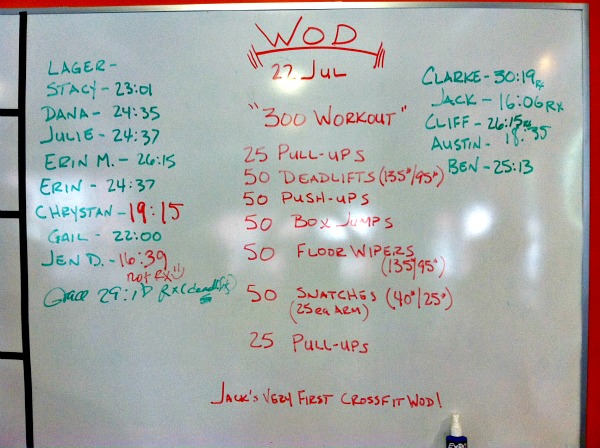 WOD
22 JUL
"300 WORKOUT"
25 PULL-UPS
50 DEADLIFTS (135#/95#)
50 PUSH-UPS
50 BOX JUMPS
50 FLOOR WIPERS
(135#/95#)
50 SNATCHES (40#/25#)
(25 ea ARM)
25 PULL-UPS
JACK'S VERY FIRST CROSSFIT WOD!
LAGER-
STACY - 23:01
DANA - 24:35
JULIE - 24:37
ERIN M. - 26:15
ERIN - 24:37
CHRYSTAN - 19:15
GAIL - 22:00
JEN D. - 16:39
not RX
Grace 29:1 RX (deadlifts)
CLARKE - 30:19 RX
JACK - 16:06 RX
CLIFF - 26:15 RX
AUSTIN - 18:35
BEN - 25:13
EXPO